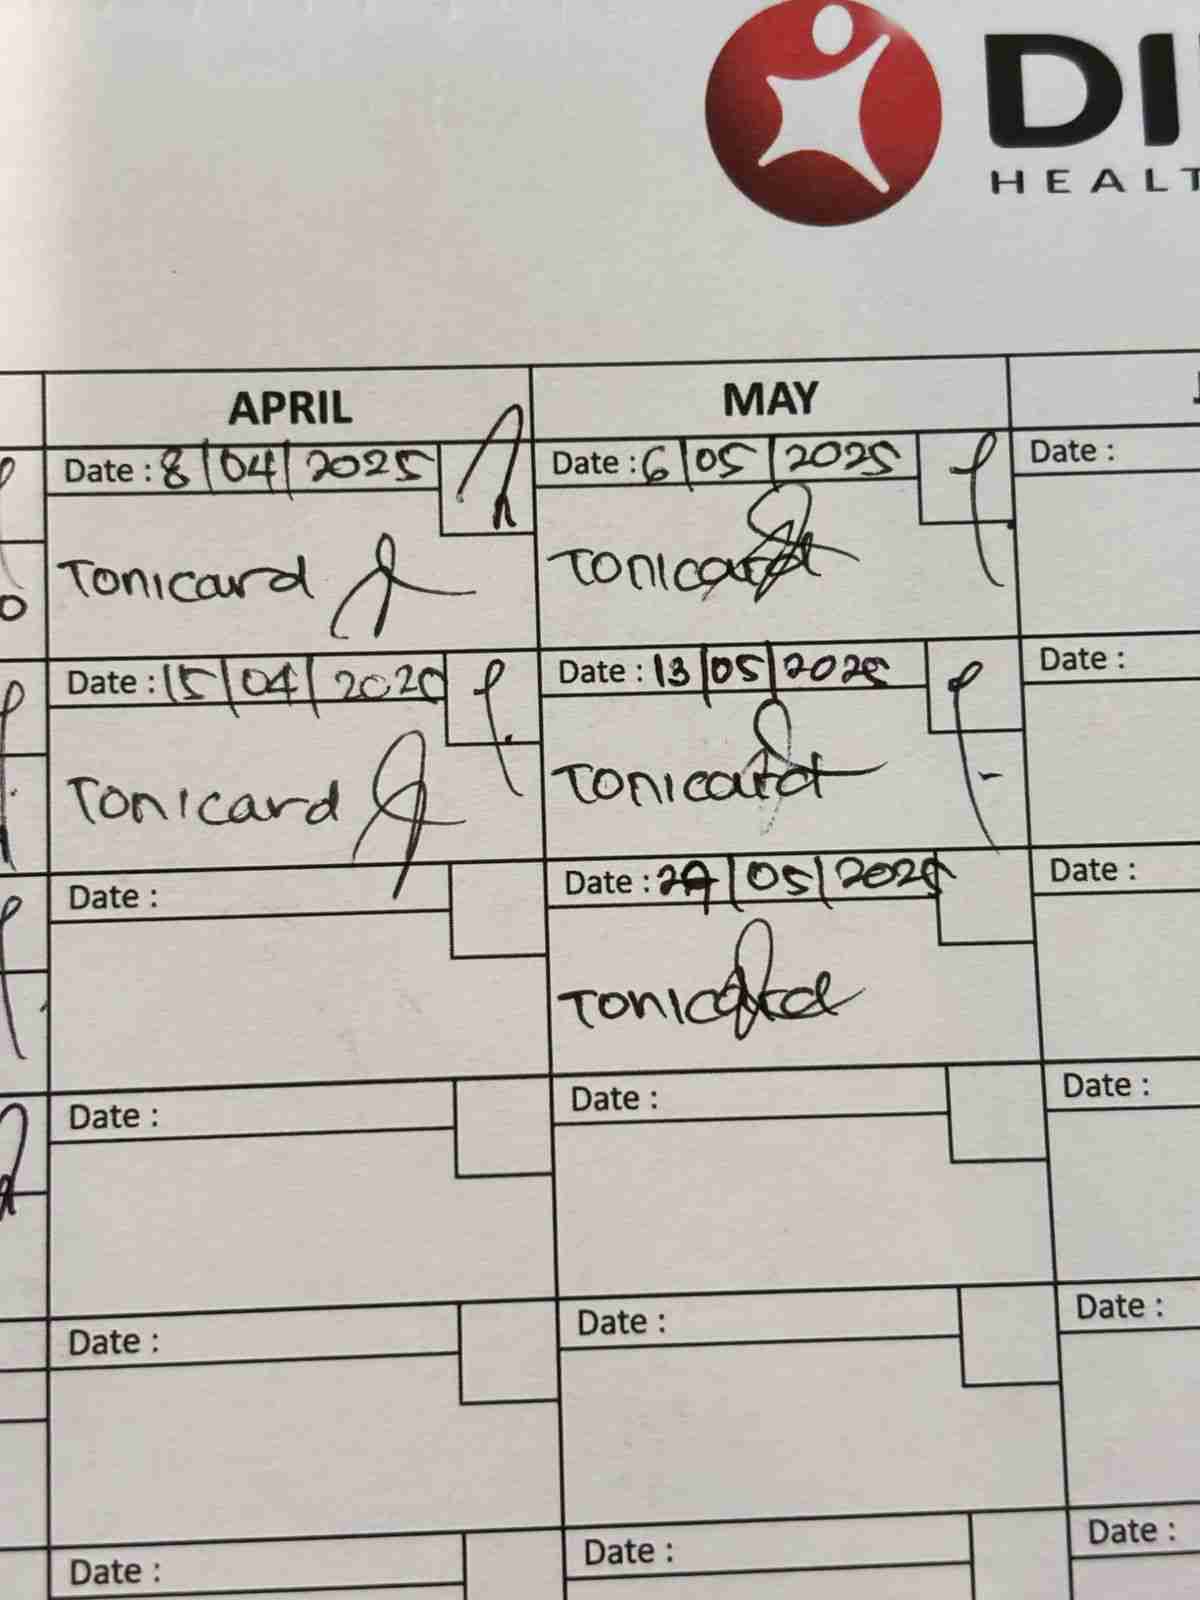 DI
HEALT
APRIL
MAY
Date : 8/04/2025
Date : 6/05/2025
Date :
Tonicard
Tonicard
Date : 15/04/2025
Date : 13/05/2025
Date :
Tonicard
Tonicard
Date :
Date : 27/05/2025
Date :
Tonicard
Date :
Date :
Date :
Date :
Date :
Date :
Date :
Date :
Date :